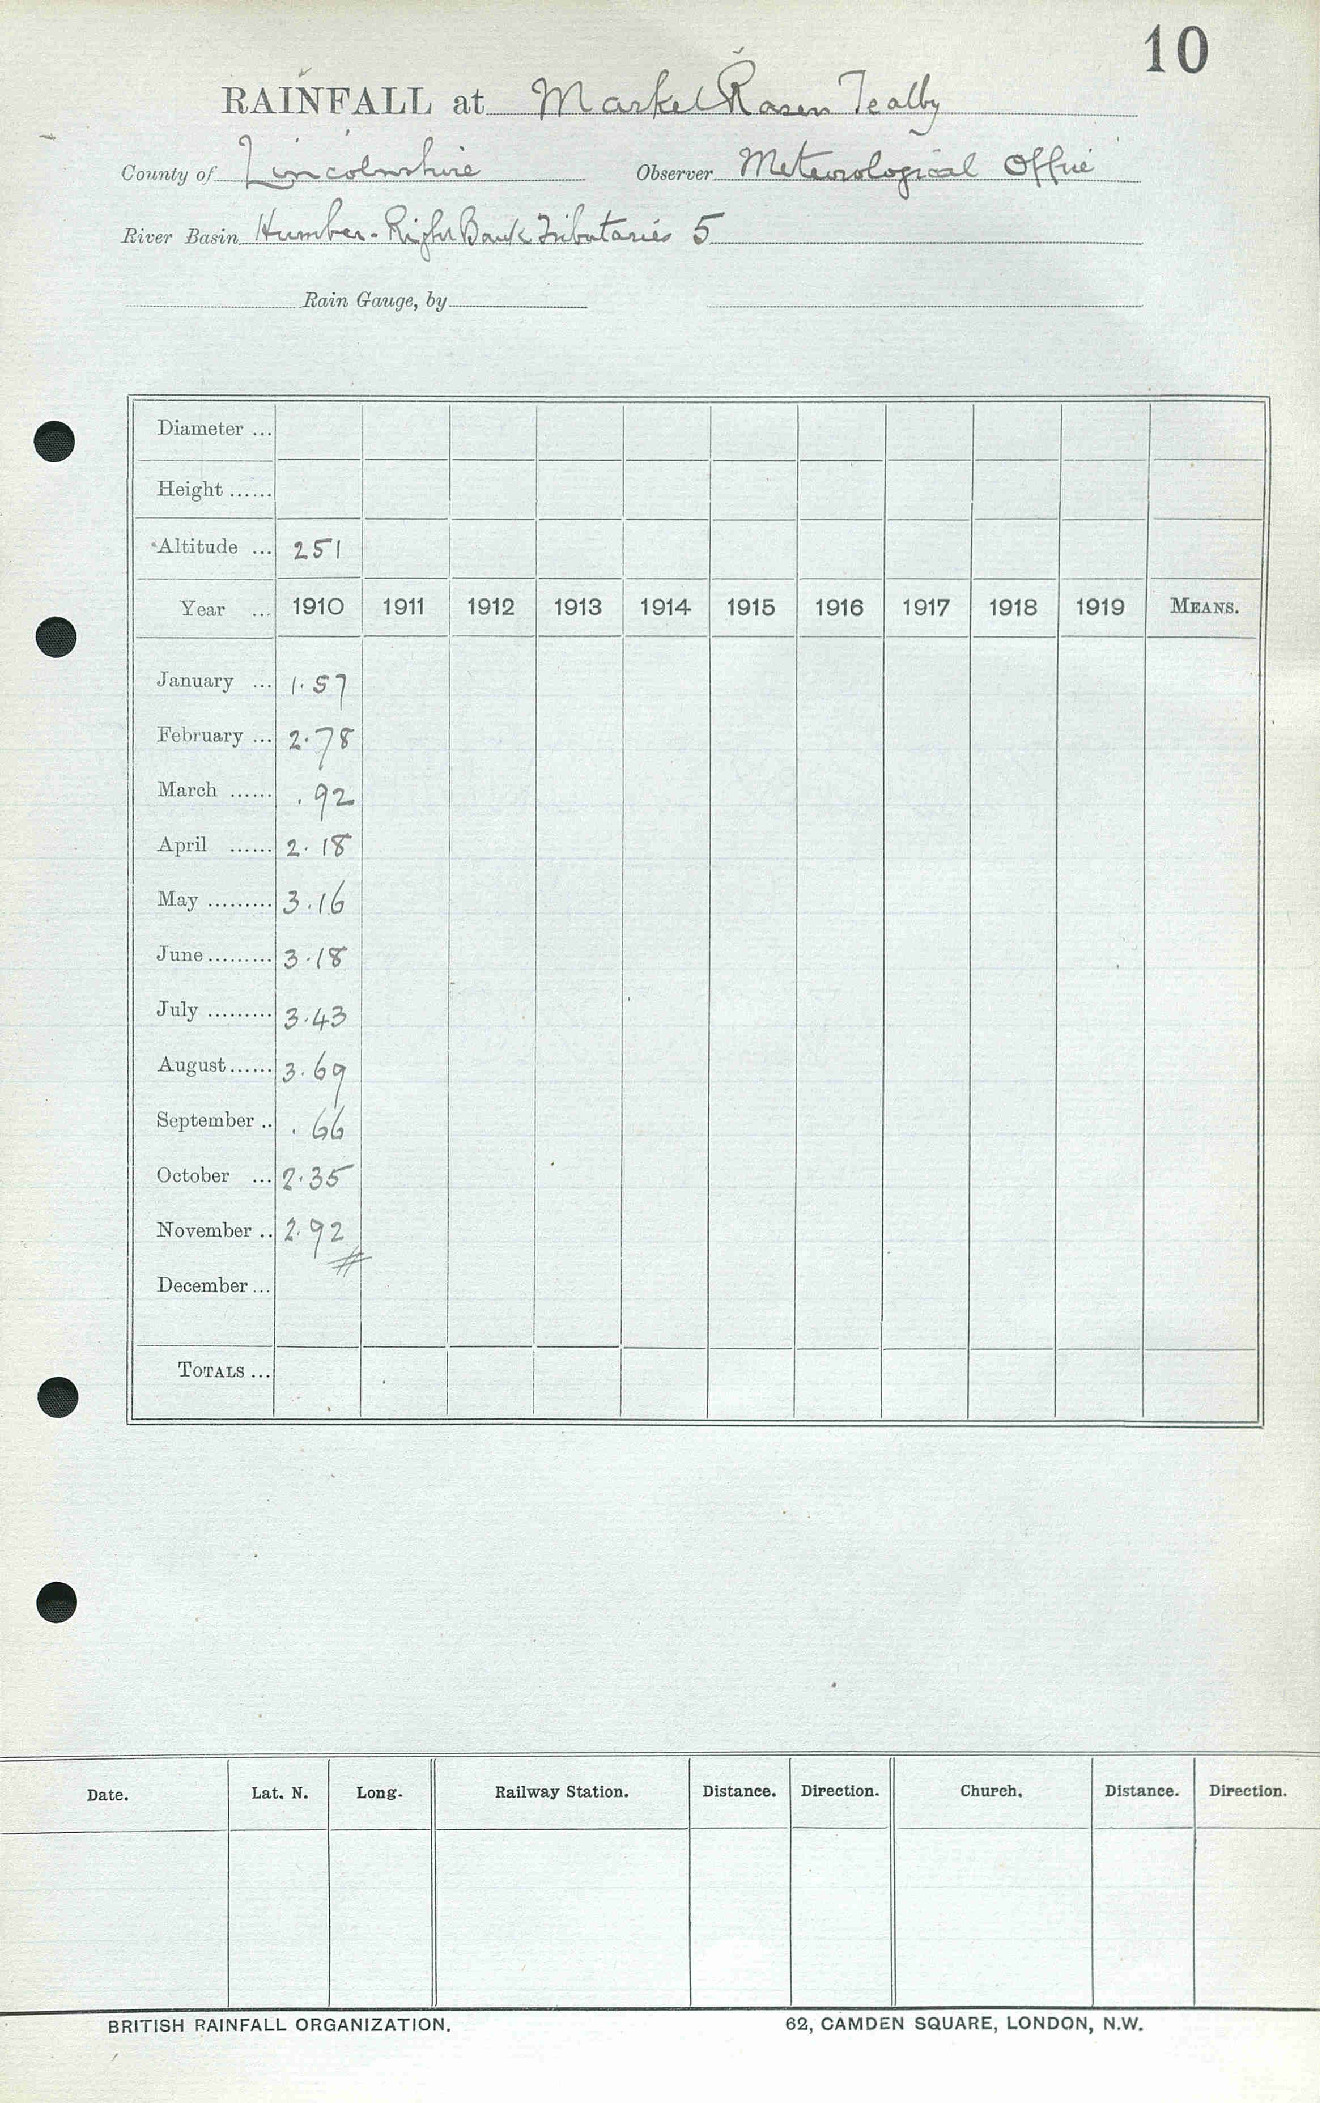 10
RAINFALL at Market Rasen Tealby
County of Lincolnshire Observer Meteorological Office
River Basin Humber - Right Bank Tributaries 5
Rain Gauge, by
Diameter ...
Height ......
Altitude ... 251
Year ... 1910 1911 1912 1913 1914 1915 1916 1917 1918 1919 MEANS.
January ... 1.57
February ... 2.78
March ...... .92
April ...... 2.18
May ......... 3.16
June ......... 3.18
July ......... 3.43
August ...... 3.69
September .. .66
October ... 2.35
November .. 2.92
December ...
TOTALS ...
Date. Lat. N. Long. Railway Station. Distance. Direction. Church. Distance. Direction.
BRITISH RAINFALL ORGANIZATION. 62, CAMDEN SQUARE, LONDON, N.W.